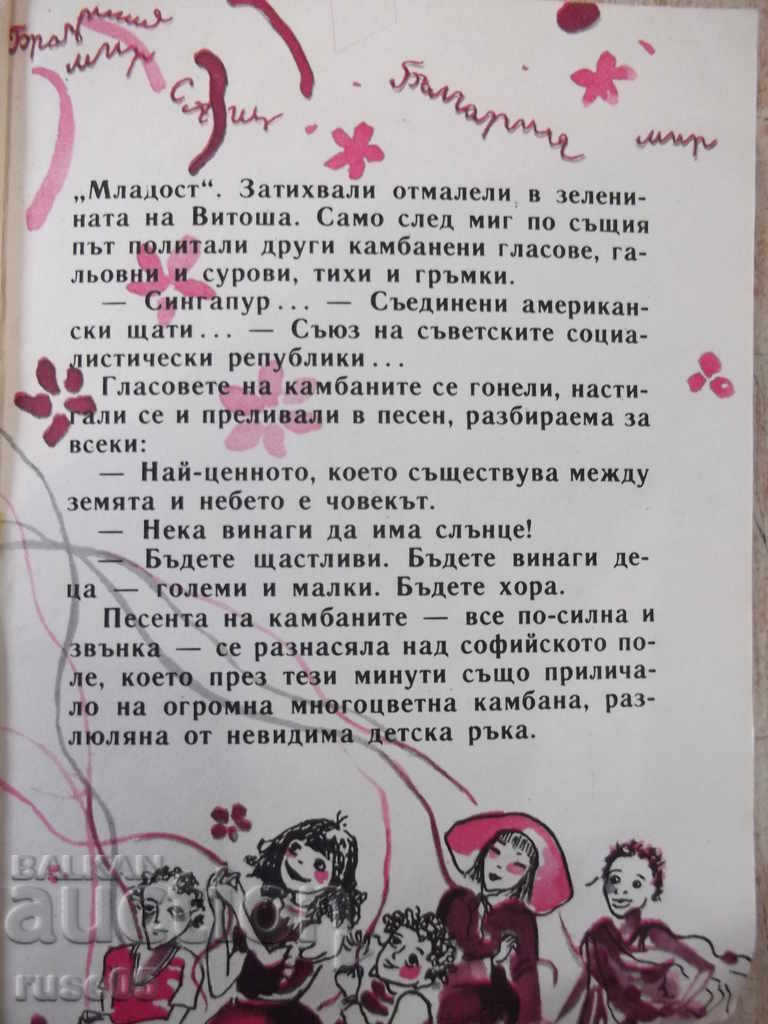 мир
България
мир
„Младост“. Затихвали отмалели в зеленината на Витоша. Само след миг по същия
път политали други камбанени гласове, га-
льовни и сурови, тихи и гръмки.
— Сингапур... — Съединени американ-
ски щати... — Съюз на съветските социа-
листически републики...
Гласовете на камбаните се гонели, насти-
гали се и преливали в песен, разбираема за
всеки:
— Най-ценното, което съществува между
земята и небето е човекът.
— Нека винаги да има слънце!
— Бъдете щастливи. Бъдете винаги де-
ца — големи и малки. Бъдете хора.
Песента на камбаните — все по-силна и
звънка — се разнасяла над софийското по-
ле, което през тези минути също прилича-
ло на огромна многоцветна камбана, раз-
люляна от невидима детска ръка.
BALKAN
auction
rusе05